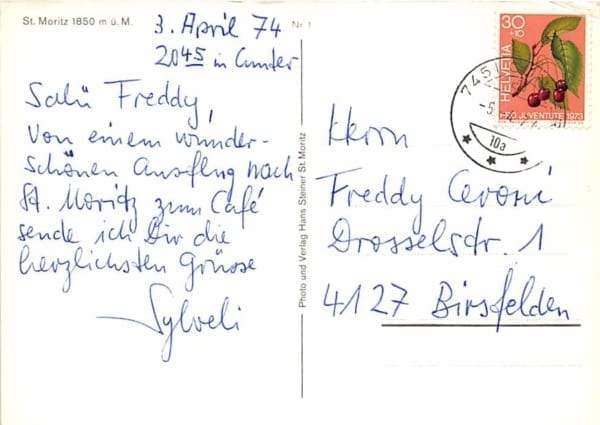 St. Moritz 1850 m ü. M.
Nr. 1
3. April 74
2045 in Cunter
Salü Freddy,
Von einem wunder-
schönen Ausflug nach
St. Moritz zum Café
sende ich Dir die
herzlichsten Grüsse
Sylveli
Photo und Verlag Hans Steiner St. Moritz
30
+10
HELVETIA
PRO JUVENTUTE 1973
745
-5.
10a
Herrn
Freddy
Drosselstr. 1
4127 Birsfelden